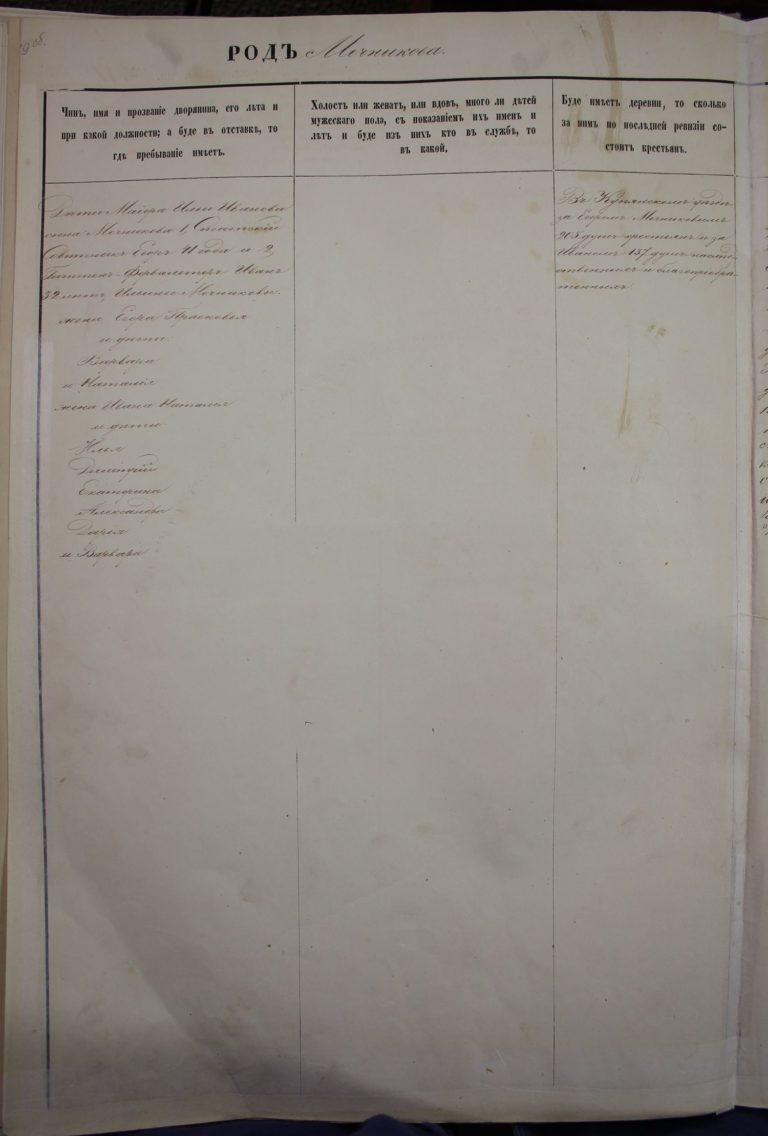 об.
РОДЪ Мечникова.
Чинъ, имя и прозваніе дворянина, его лѣта и
при какой должности; а буде въ отставкѣ, то
гдѣ пребываніе имѣетъ.
Холостъ или женатъ, или вдовъ, много ли дѣтей
мужескаго пола, съ показаніемъ ихъ именъ и
лѣтъ и буде изъ нихъ кто въ службѣ, то
въ какой.
Буде имѣетъ деревни, то сколько
за нимъ по послѣдней ревизіи со-
стоитъ крестьянъ.
Дѣти Маіора Ильи Иванова
сына Мечникова 1, Статскій
Совѣтникъ Егоръ года и 2,
Гиттенъ-Фервалтеръ Иванъ
32 лѣтъ, Ильины Мечниковы.
жена Егора Прасковья
и дѣти
Варвара
и Наталія
жена Ивана Наталья
и дѣти
Илья
Дмитрій
Екатерина
Александра
Дарья
и Варвара
Въ Купянскомъ уѣздѣ
за Егоромъ Мечниковымъ
205 душъ крестьянъ и за
Иваномъ 157 душъ наслѣд-
ственныхъ и благопріобрѣ-
тенныхъ.